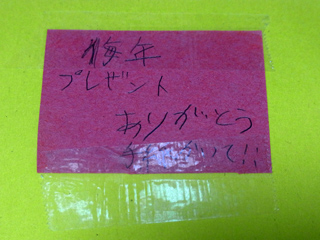 毎年
プレゼント
ありがとう